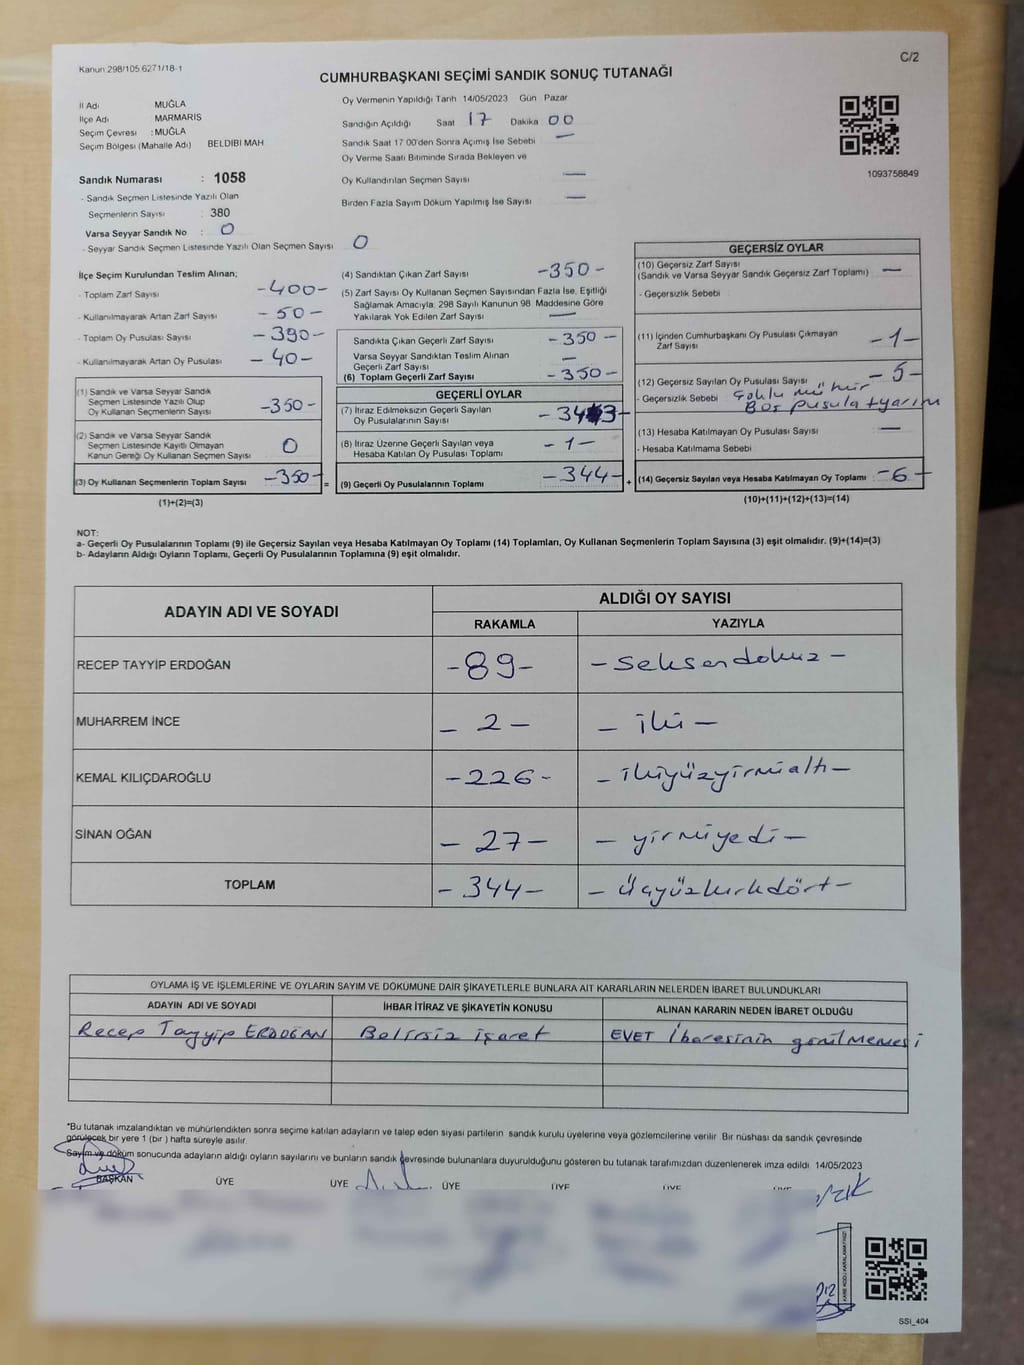 Kanun 298/105 6271/18-1
C/2
CUMHURBAŞKANI SEÇİMİ SANDIK SONUÇ TUTANAĞI
İl Adı MUĞLA
İlçe Adı MARMARİS
Seçim Çevresi : MUĞLA
Seçim Bölgesi (Mahalle Adı) BELDIBI MAH
Sandık Numarası : 1058
- Sandık Seçmen Listesinde Yazılı Olan
Seçmenlerin Sayısı : 380
Varsa Seyyar Sandık No : 0
- Seyyar Sandık Seçmen Listesinde Yazılı Olan Seçmen Sayısı 0
Oy Vermenin Yapıldığı Tarih 14/05/2023 Gün Pazar
Sandığın Açıldığı Saat 17 Dakika 00
Sandık Saat 17 00'den Sonra Açılmış İse Sebebi —
Oy Verme Saati Bitiminde Sırada Bekleyen ve
Oy Kullandırılan Seçmen Sayısı —
Birden Fazla Sayım Döküm Yapılmış İse Sayısı —
1093758849
İlçe Seçim Kurulundan Teslim Alınan;
- Toplam Zarf Sayısı -400-
- Kullanılmayarak Artan Zarf Sayısı -50-
- Toplam Oy Pusulası Sayısı -390-
- Kullanılmayarak Artan Oy Pusulası -40-
(1) Sandık ve Varsa Seyyar Sandık
Seçmen Listesinde Yazılı Olup
Oy Kullanan Seçmenlerin Sayısı -350-
(2) Sandık ve Varsa Seyyar Sandık
Seçmen Listesinde Kayıtlı Olmayan
Kanun Gereği Oy Kullanan Seçmen Sayısı 0
(3) Oy Kullanan Seçmenlerin Toplam Sayısı -350- =
(1)+(2)=(3)
(4) Sandıktan Çıkan Zarf Sayısı -350-
(5) Zarf Sayısı Oy Kullanan Seçmen Sayısından Fazla İse, Eşitliği
Sağlamak Amacıyla, 298 Sayılı Kanunun 98. Maddesine Göre
Yakılarak Yok Edilen Zarf Sayısı —
Sandıkta Çıkan Geçerli Zarf Sayısı -350-
Varsa Seyyar Sandıktan Teslim Alınan
Geçerli Zarf Sayısı —
(6) Toplam Geçerli Zarf Sayısı -350-
GEÇERLİ OYLAR
(7) İtiraz Edilmeksizin Geçerli Sayılan
Oy Pusulalarının Sayısı -343-
(8) İtiraz Üzerine Geçerli Sayılan veya
Hesaba Katılan Oy Pusulası Toplamı -1-
(9) Geçerli Oy Pusulalarının Toplamı -344- +
GEÇERSİZ OYLAR
(10) Geçersiz Zarf Sayısı
(Sandık ve Varsa Seyyar Sandık Geçersiz Zarf Toplamı) —
- Geçersizlik Sebebi
(11) İçinden Cumhurbaşkanı Oy Pusulası Çıkmayan
Zarf Sayısı -1-
(12) Geçersiz Sayılan Oy Pusulası Sayısı -5-
- Geçersizlik Sebebi Çoklu mühür
Boş pusula + yarım
(13) Hesaba Katılmayan Oy Pusulası Sayısı —
- Hesaba Katılmama Sebebi
(14) Geçersiz Sayılan veya Hesaba Katılmayan Oy Toplamı -6-
(10)+(11)+(12)+(13)=(14)
NOT:
a- Geçerli Oy Pusulalarının Toplamı (9) ile Geçersiz Sayılan veya Hesaba Katılmayan Oy Toplamı (14) Toplamları, Oy Kullanan Seçmenlerin Toplam Sayısına (3) eşit olmalıdır. (9)+(14)=(3)
b- Adayların Aldığı Oyların Toplamı, Geçerli Oy Pusulalarının Toplamına (9) eşit olmalıdır.
ADAYIN ADI VE SOYADI ALDIĞI OY SAYISI
RAKAMLA YAZIYLA
RECEP TAYYİP ERDOĞAN -89- -seksendokuz-
MUHARREM İNCE -2- -iki-
KEMAL KILIÇDAROĞLU -226- -ikiyüzyirmialtı-
SİNAN OĞAN -27- -yirmiyedi-
TOPLAM -344- -üçyüzkırkdört-
OYLAMA İŞ VE İŞLEMLERİNE VE OYLARIN SAYIM VE DÖKÜMÜNE DAİR ŞİKAYETLERLE BUNLARA AİT KARARLARIN NELERDEN İBARET BULUNDUKLARI
ADAYIN ADI VE SOYADI İHBAR İTİRAZ VE ŞİKAYETİN KONUSU ALINAN KARARIN NEDEN İBARET OLDUĞU
Recep Tayyip ERDOĞAN Belirsiz işaret EVET İbaresinin görülMEMESİ
*Bu tutanak imzalandıktan ve mühürlendikten sonra seçime katılan adayların ve talep eden siyasi partilerin sandık kurulu üyelerine veya gözlemcilerine verilir Bir nüshası da sandık çevresinde
görülecek bir yere 1 (bir ) hafta süreyle asılır.
Sayım ve döküm sonucunda adayların aldığı oyların sayılarını ve bunların sandık çevresinde bulunanlara duyurulduğunu gösteren bu tutanak tarafımızdan düzenlenerek imza edildi 14/05/2023
BAŞKAN ÜYE ÜYE ÜYE ÜYE ÜYE ÜYE
SSİ_404